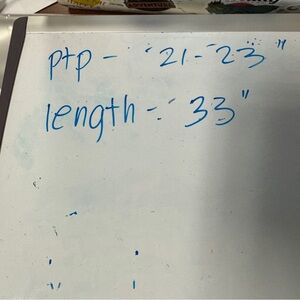 ptp - 21-23"
length - 33"